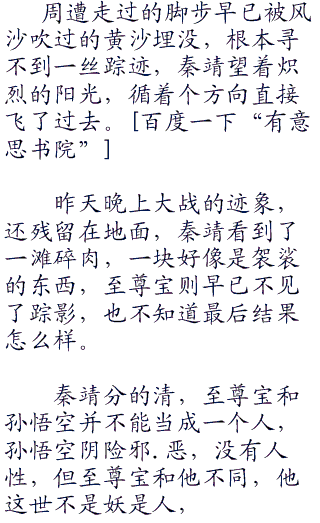 周遭走过的脚步早已被风
沙吹过的黄沙埋没，根本寻
不到一丝踪迹，秦靖望着炽
烈的阳光，循着个方向直接
飞了过去。[百度一下“有意
思书院”]
昨天晚上大战的迹象，
还残留在地面，秦靖看到了
一滩碎肉，一块好像是袈裟
的东西，至尊宝则早已不见
了踪影，也不知道最后结果
怎么样。
秦靖分的清，至尊宝和
孙悟空并不能当成一个人，
孙悟空阴险邪.恶，没有人
性，但至尊宝和他不同，他
这世不是妖是人，